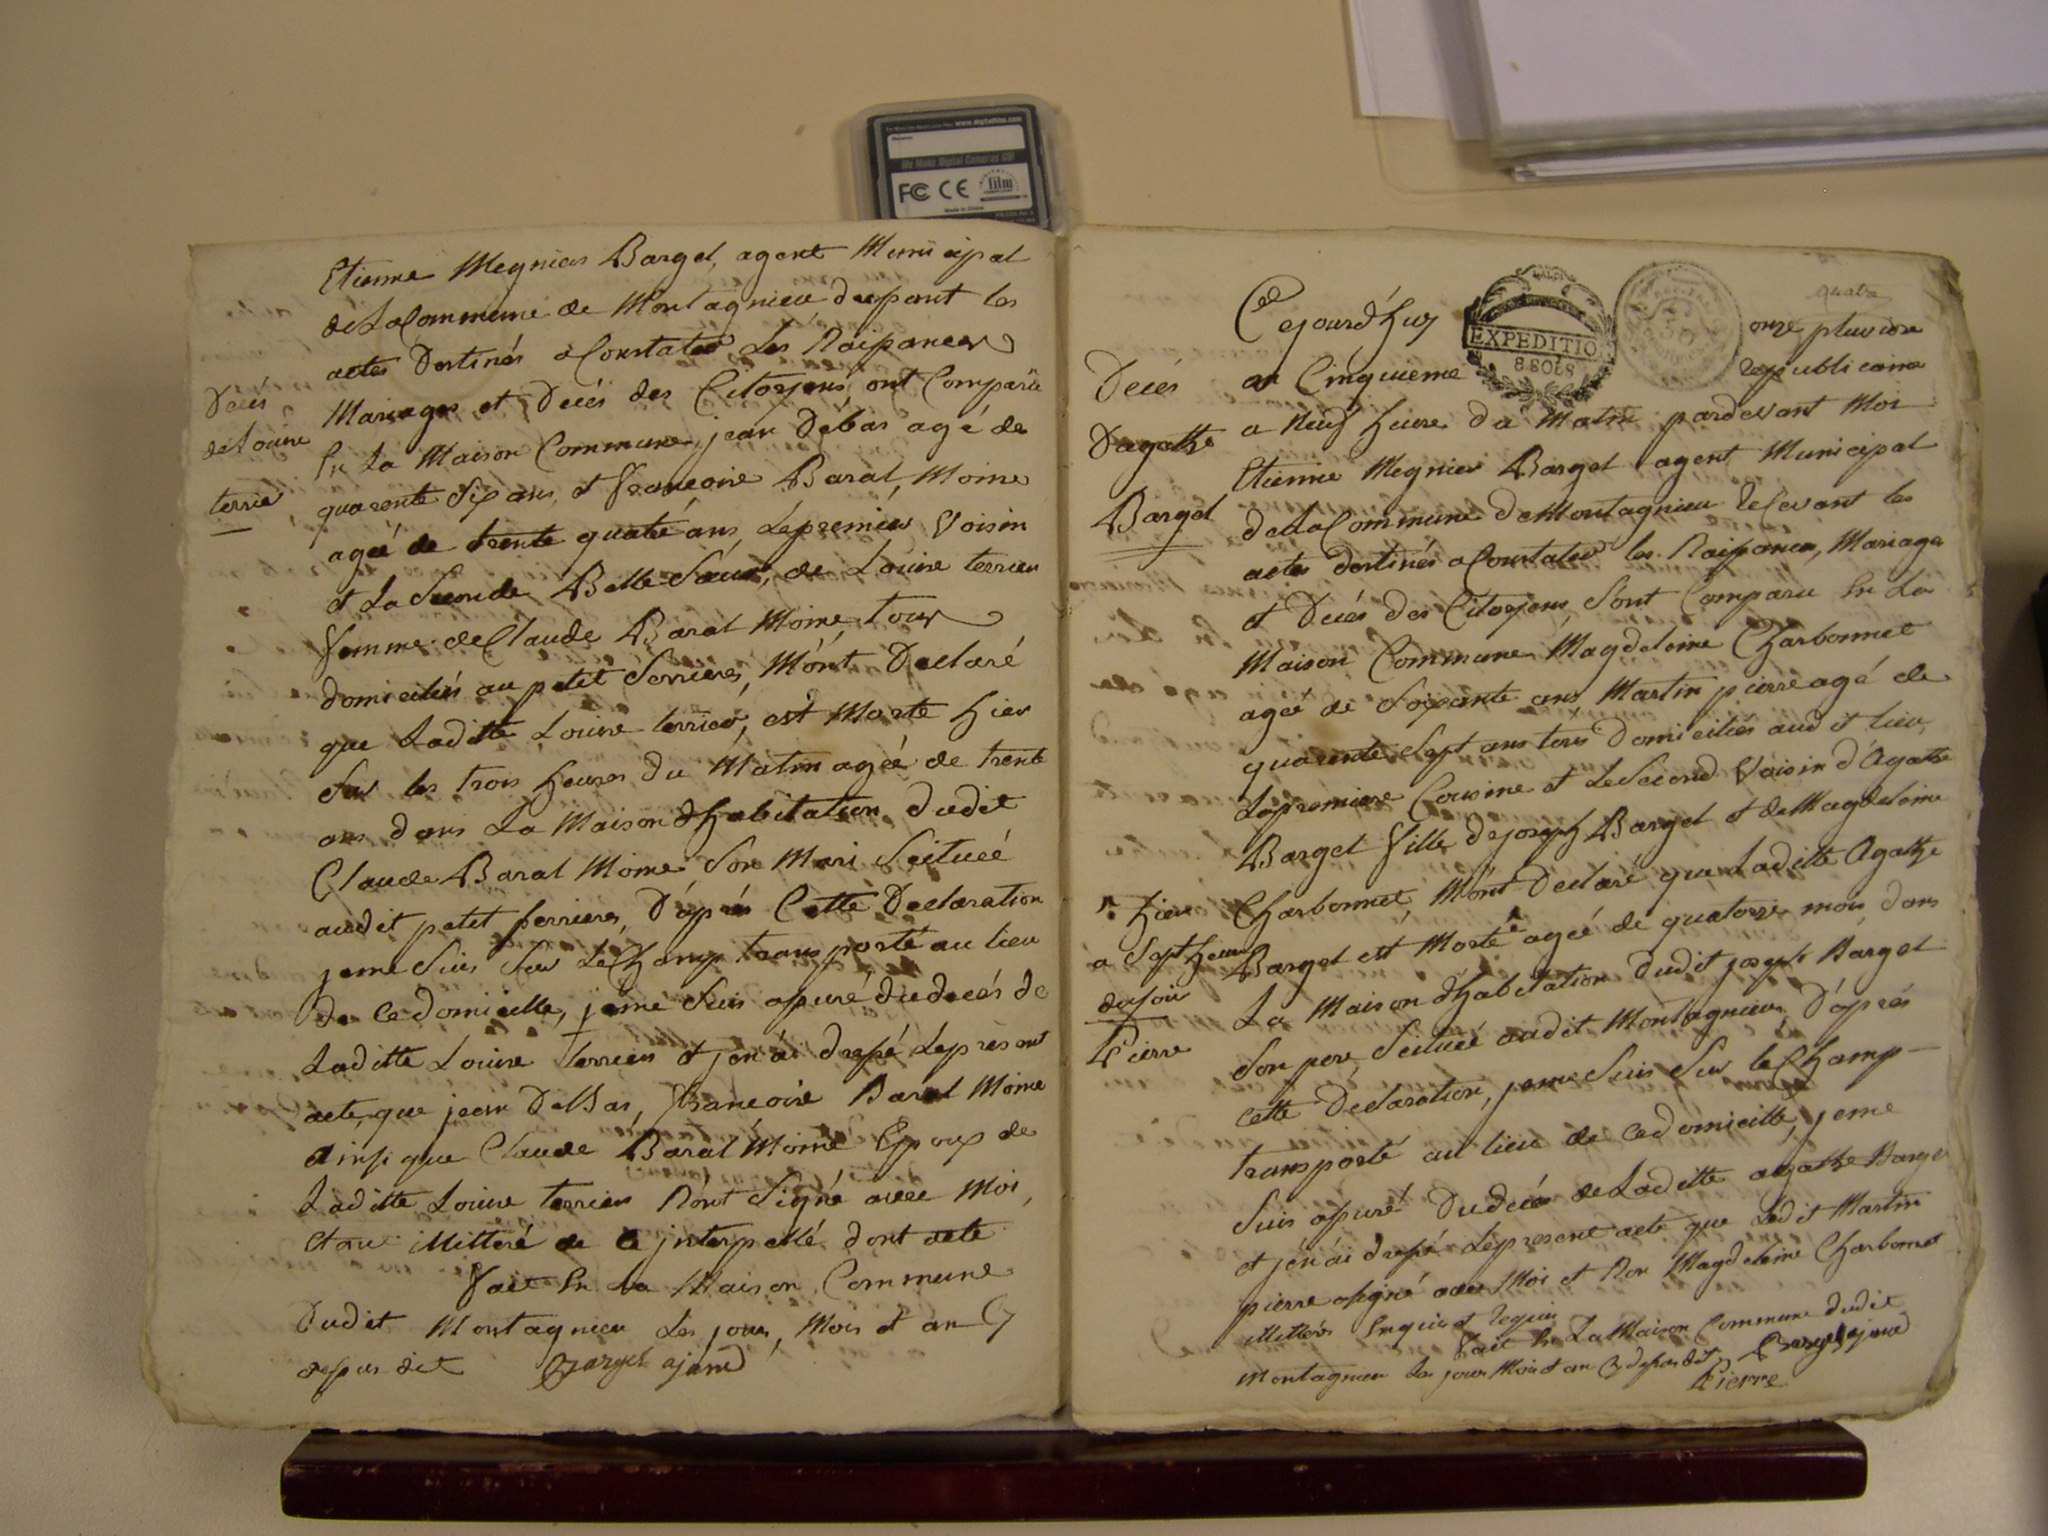 www.digitalfilm.com
We Make Digital Cameras GO!
FC CE film
Etienne Megnier Bargel, agent Municipal
de La Commune de Montagnieu, les
actes Destinés a Constater Les Naissances
Mariages et Décés des Citoyens, ont Comparu
En La Maison Commune, jean Débas agé de
quarente Six ans, et francoise Baral Moine
ageé de trente quatre ans, Le premier Voisin
et La Seconde Belle Sœur, de Louise terrier
femme de Claude Baral Moine, tous
domiciliés au petit Serrieres, M'ont Declaré
que Laditte Louise terrier, est Morte hier
Sur les trois heures du Matin ageé de trente
ans dans La Maison d'habitation dudit
Claude Baral Moine Son Mari Scituée
audit petit ferrieres, D'aprés Cette Declaration
jeme Suis Sur Le Champ transporté au lieu
de Ce domicille, jeme Suis assuré du decés de
Laditte Louise terrier et jen ái dressé Le présent
acte, que jean Debas, francoise Baral Moine
ainsi que Claude Baral Moine Epoux de
Laditte Louise terrier N'ont Signé avec Moi,
illitteré de Ce jnterpellé dont acte
fait En La Maison Commune
Dudit Montagnieu Les jour, Mois et an Cy
dessus dit Bargel ajend
Décés
de Louise
terrier
Cejourd'huy EXPEDITIO 8 SOLS onze pluviose
an Cinquieme Republicaine
a Neuf heure du Matin pardevant Moi
Etienne Megnier Bargel agent Municipal
de La Commune de Montagnieu Recevant les
actes destinés a Constater les Naissances, Mariages
et Décés des Citoyens, Sont Comparu En La
Maison Commune Magdeleine Charbonnet
ageé de Soixante ans, Martin pierre agé de
quarente Sept ans tous Domiciliés audit lieu,
La premiere Cousine et Le Second Voisin d'Agathe
Bargel fille de joseph Bargel et de Magdeleine
Charbonnet, M'ont Declaré que Laditte Agathe
Bargel est Morte ageé de quatorze mois, dans
La Maison d'habitation dudit joseph Bargel
Son pere, Scituée audit Montagnieu, D'aprés
cette Declaration, jeme Suis Sur le Champ
transporté au lieu de Ce domicille, jeme
Suis assuré Du decés de Laditte agathe Bargel
et jen ái dressé Le present acte que Ledit Martin
pierre a signé avec Moi et Non Magdeleine Charbonnet
illitteré Enquis et Requis
fait En La Maison Commune dudit
Montagnieu Les jour Mois et an Cy dessus dit Bargel ajend
Pierre
Décés
D'agathe
Bargel
hier
a Sept heures
du soir
Pierre